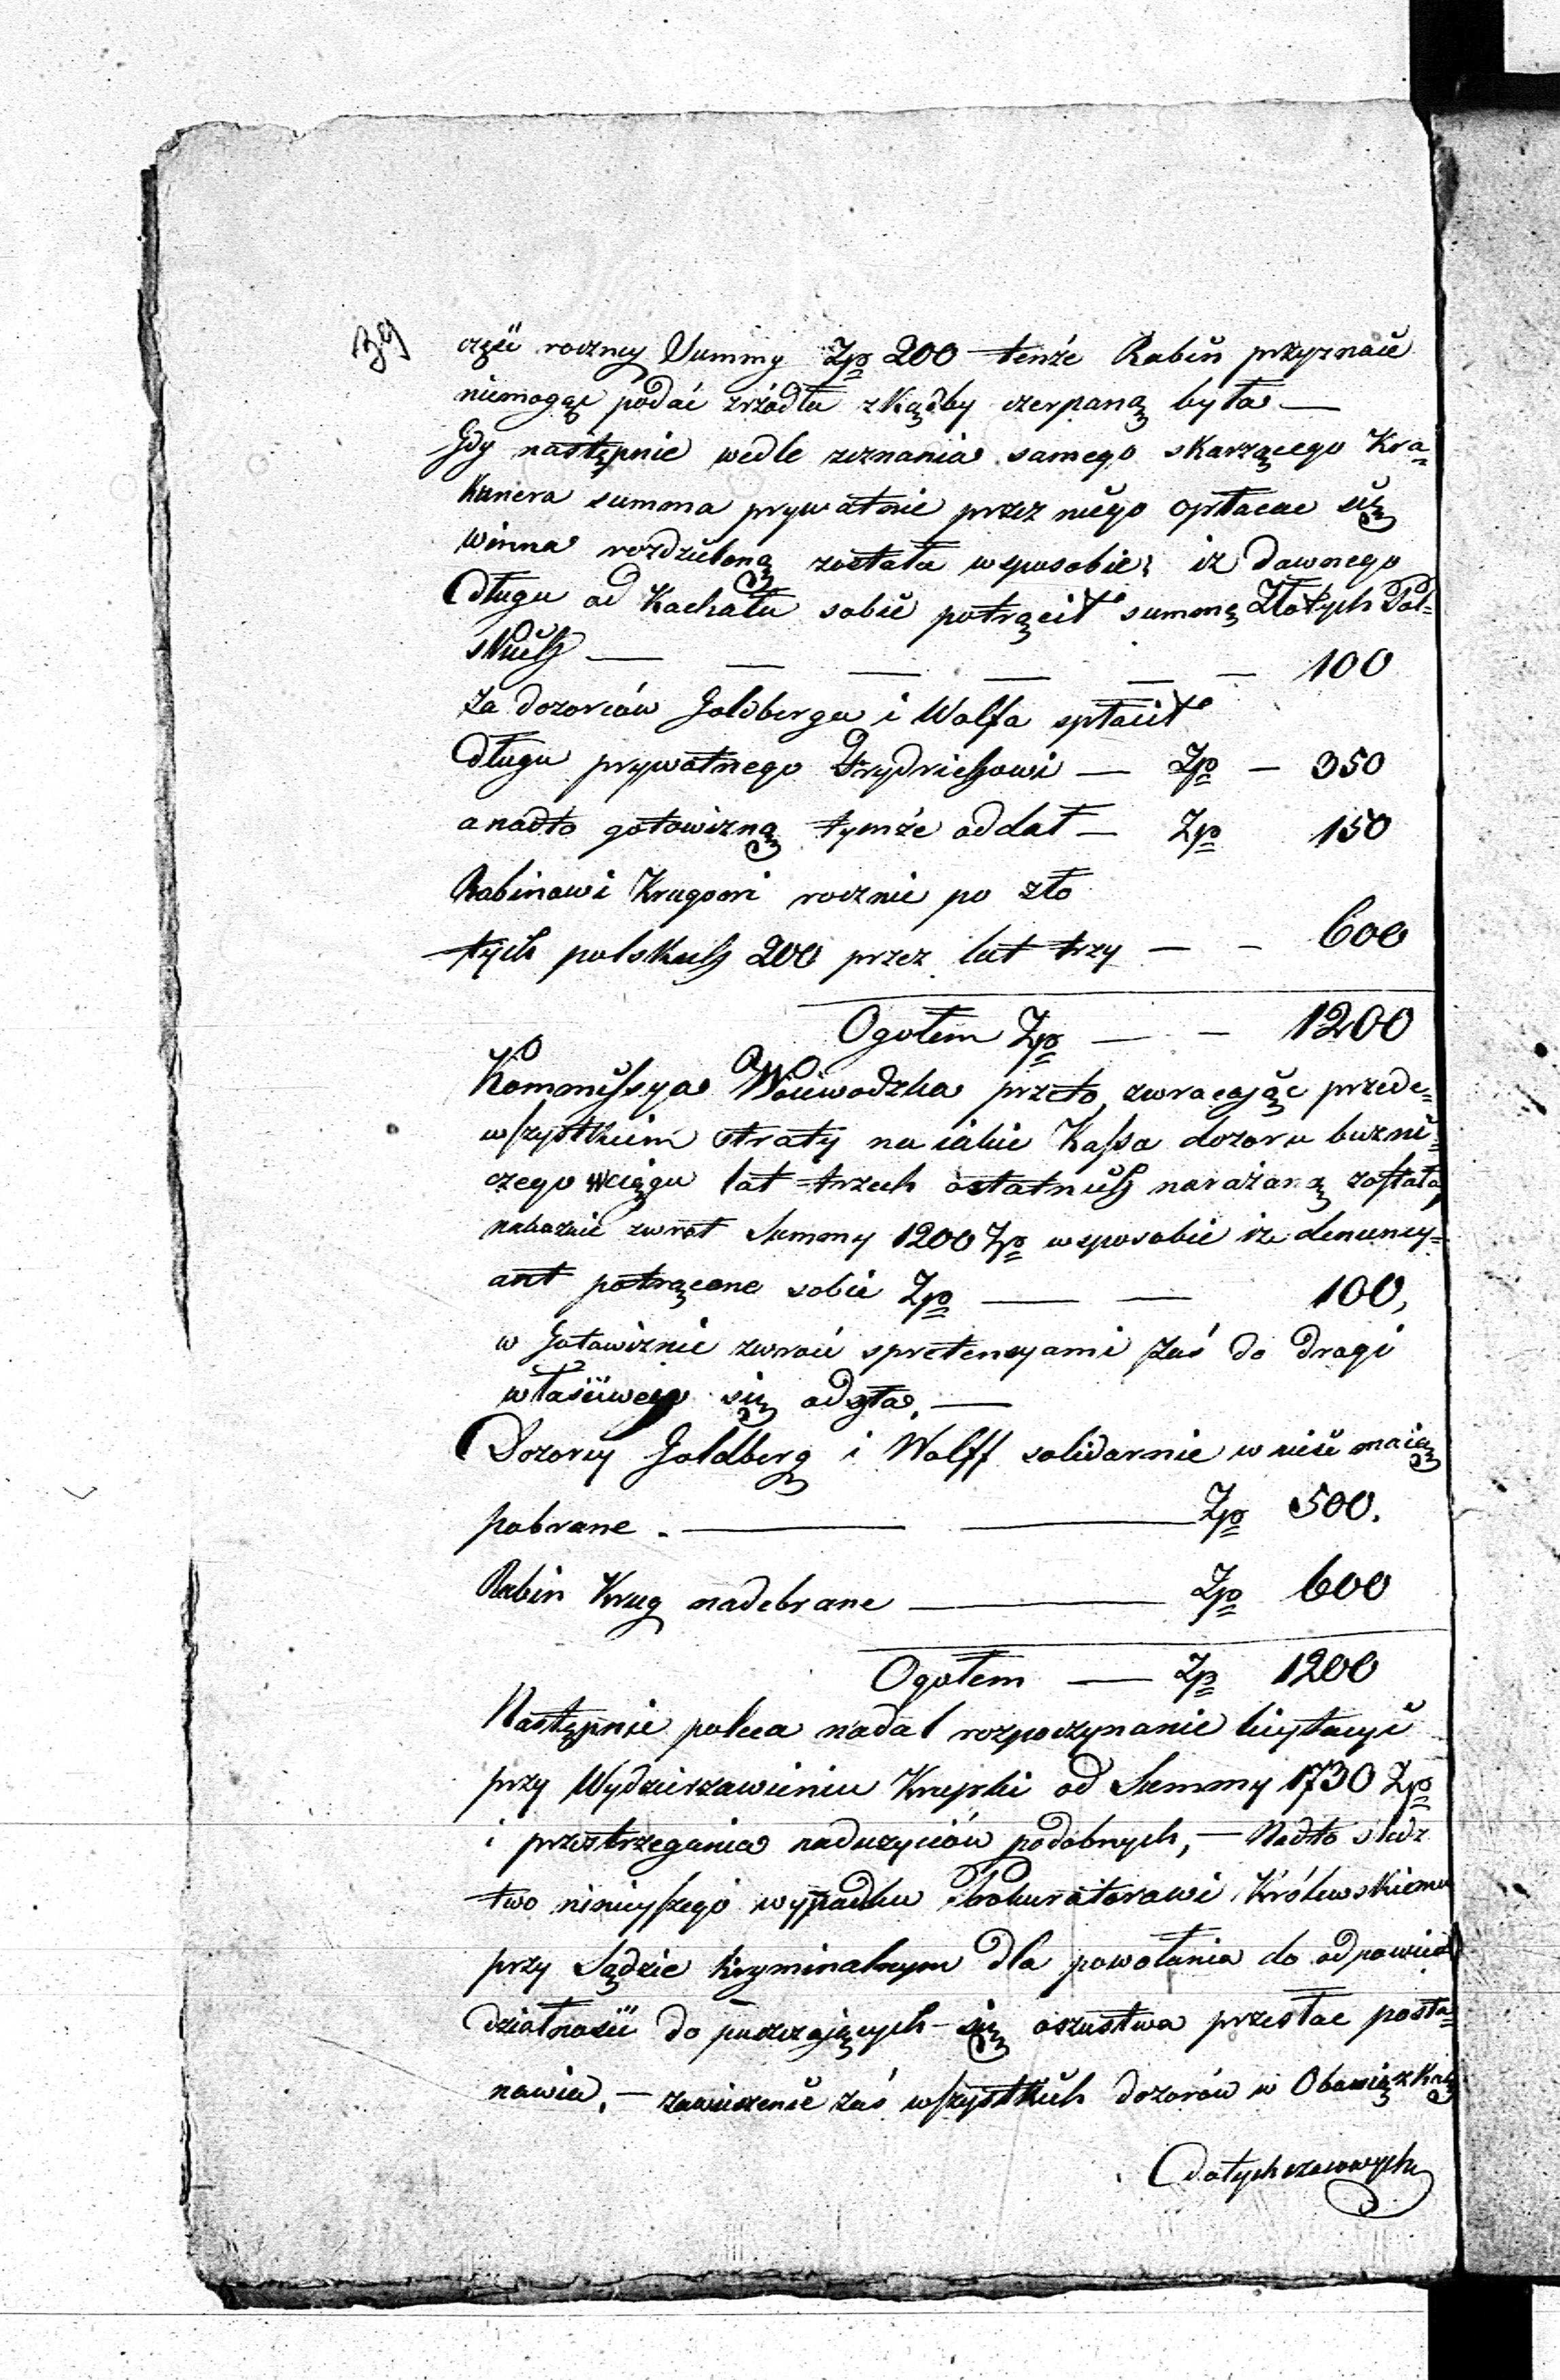 39
części roczney Summy Zp 200 tenże Rabin przyznaie
niemogąc podać zrźodła zkądby czerpaną była —
Gdy następnie wedle zeznania samego skarzącego Kra=
kznera summa prywatnie przez niego opłacac się
winna rozdzieloną została wsposobie; iz dawnego
Długu od Kachału sobie potrącił summę Złotych Pol=
skich — — — — — — 100
za dozorców Goldberga i Wolfa spłacił
długu prywatnego Frydrichowi — Zp — 350
a nadto gotowizną tymże oddał — Zp 150
Rabinowi Krugowi rocznie po zło
tych polskich 200 przez lat trzy — — 600
Ogołem Zp — — 1200
Kommissya Woiewodzka przeto, zwracaiąc przede=
wszystkiem straty na iakie Kassa dozoru buzni=
czego wciągu lat trzech ostatnich narażaną została,
nakazuie zwrot Summy 1200 Zp wsposobie iz denuncy=
ant potrącone sobie Zp — — 100,
w Gotowiznie zwroci spretensyami zaś do drogi
właściwey się odzła. —
Dozorcy Goldberg i Wolff solidarnie wnieśc maią
pobrane. — — Zp 500.
Rabin Krug nadebrane — Zp 600
Ogołem — Zp 1200
Następnie poleca nadal rozpoczynanie licytacyi
przy Wydzierzawieniu Krupki od Summy 1730 Zp
i przestrzegania naduzyciów podobnych, — Nadto śledz
two ninieyszego wypadku Prokuratorowi Królewskiemu
przy Sądzie Kryminalnym dla powołania do odpowied
działności dopuszczaiących się oszustwa przesłac posta=
nawia. — zawieszenie zaś wszystkich dozorów w Obowiązkach
dotychczasowych